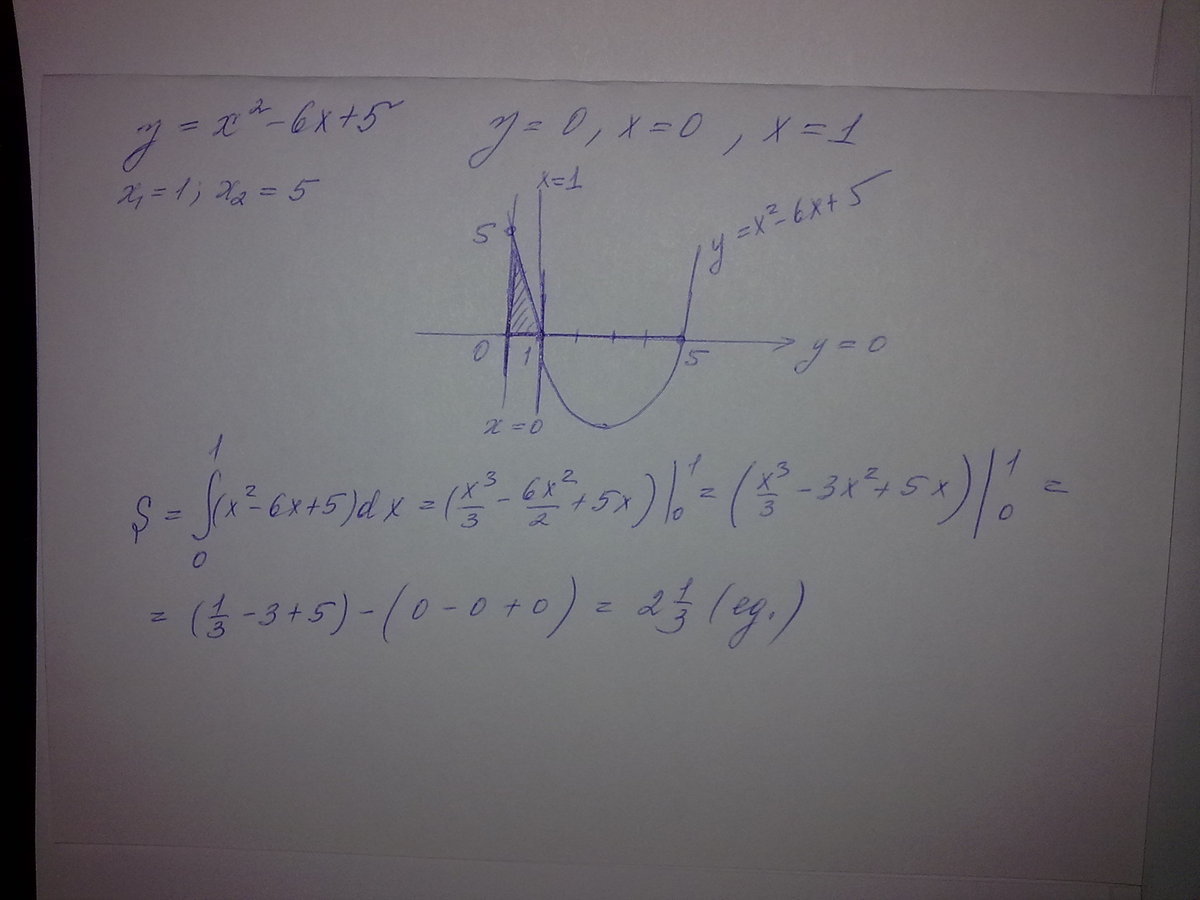 y = x² - 6x + 5 y = 0, x = 0, x = 1
x₁ = 1; x₂ = 5
x=1
5
y = x² - 6x + 5
0 1 5 y = 0
x = 0
S = ∫₀¹ (x² - 6x + 5)dx = (x³/3 - 6x²/2 + 5x)|₀¹ = (x³/3 - 3x² + 5x)|₀¹ =
= (1/3 - 3 + 5) - (0 - 0 + 0) = 2 1/3 (ед.)